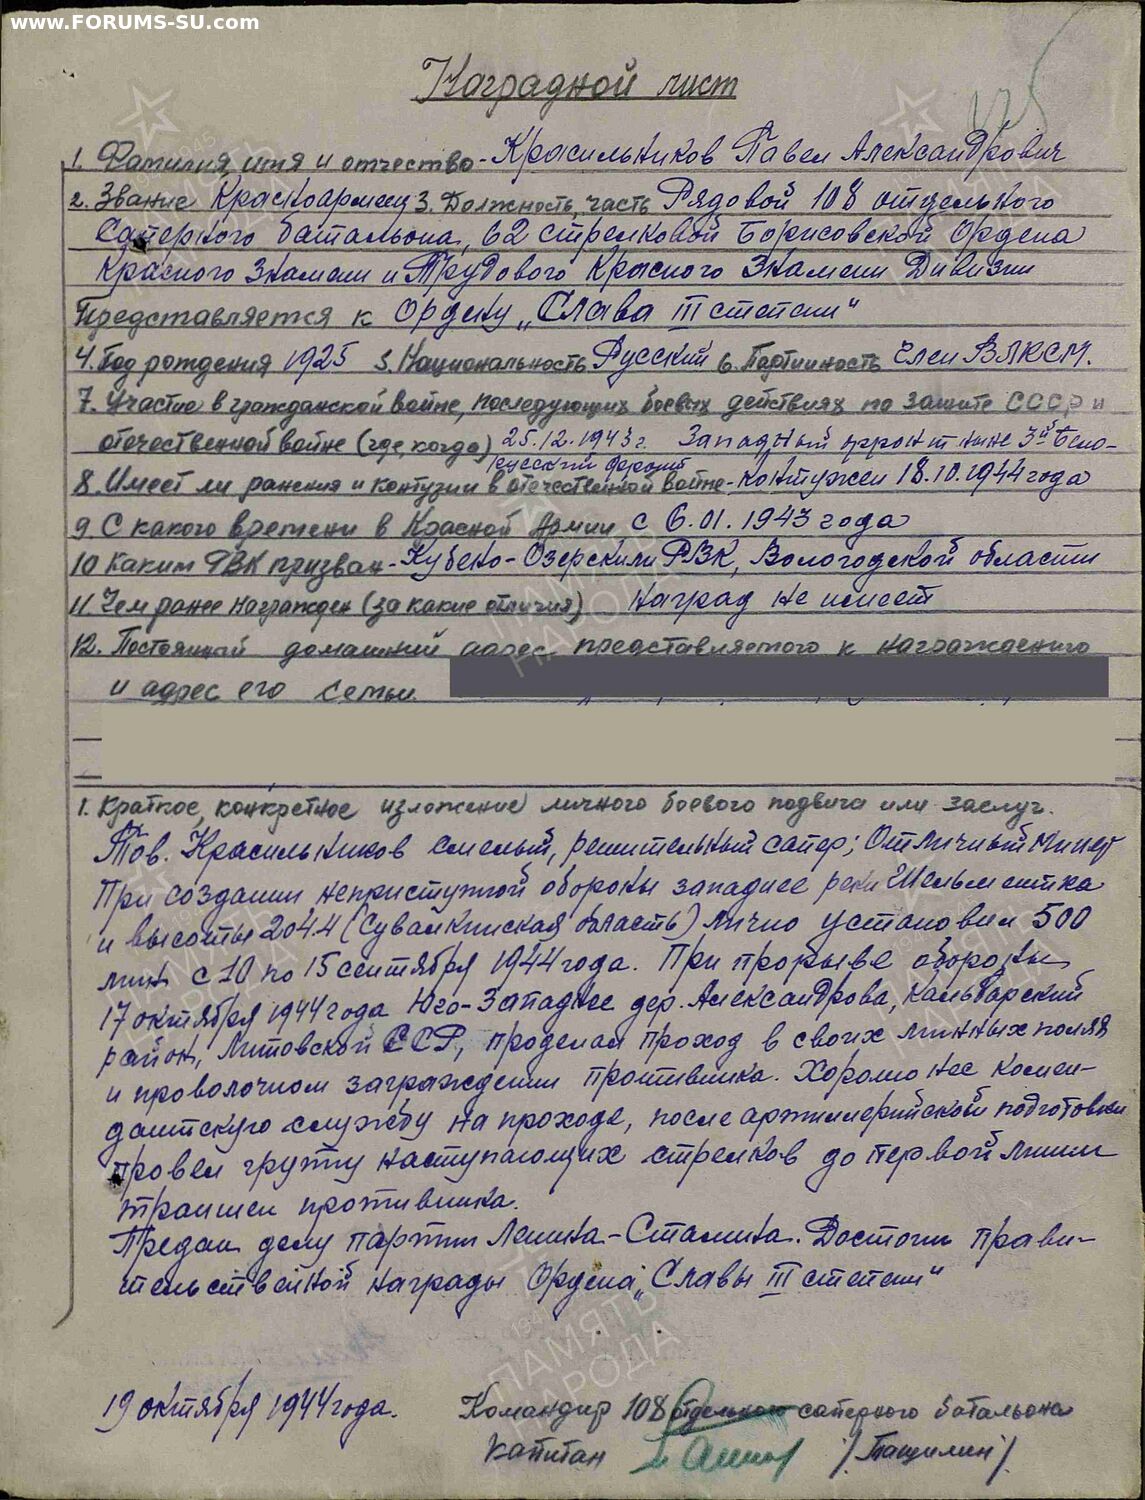 www.FORUMS-SU.com
Наградной лист
175
1. Фамилия, имя и отчество - Красильников Павел Александрович
2. Звание Красноармеец 3. Должность, часть Рядовой 108 отдельного
Саперного батальона, 62 стрелковой Борисовской Ордена
Красного Знамени и Трудового Красного Знамени Дивизии
Представляется к Ордену „Слава III степени“
4. Год рождения 1925 5. Национальность Русский 6. Партийность Член ВЛКСМ.
7. Участие в гражданской войне, последующих боевых действиях по защите СССР и
отечественной войне (где, когда) 25.12.1943 г. Западный фронт ныне 3й Бело-
русский фронт
8. Имеет ли ранения и контузии в отечественной войне - контужен 18.10.1944 года
9. С какого времени в Красной Армии с 6.01.1943 года
10 Каким РВК призван - Кубено-Озерским РВК, Вологодской области
11. Чем ранее награжден (за какие отличия) наград не имеет
12. Постоянный домашний адрес представляемого к награждению
и адрес его семьи
1. Краткое, конкретное изложение личного боевого подвига или заслуг.
Тов. Красильников смелый, решительный сапер; Отличный Минер
При создании неприступной обороны западнее реки Шельментка
и высоты 204.4 (Сувалкинская область) лично установил 500
мин с 10 по 15 сентября 1944 года. При прорыве обороны
17 октября 1944 года Юго-Западнее дер. Александрова, Кальварский
район, Литовской ССР, проделал проход в своих минных полях
и проволочном заграждении противника. Хорошо нес комен-
дантскую службу на проходе, после артиллерийской подготовки
провел группу наступающих стрелков до первой линии
траншеи противника.
Предан делу партии Ленина-Сталина. Достоин прави-
тельственной награды Ордена „Славы III степени“
19 октября 1944 года.
Командир 108 отдельного саперного батальона
капитан /Пащилин/
ПАМЯТЬ
НАРОДА